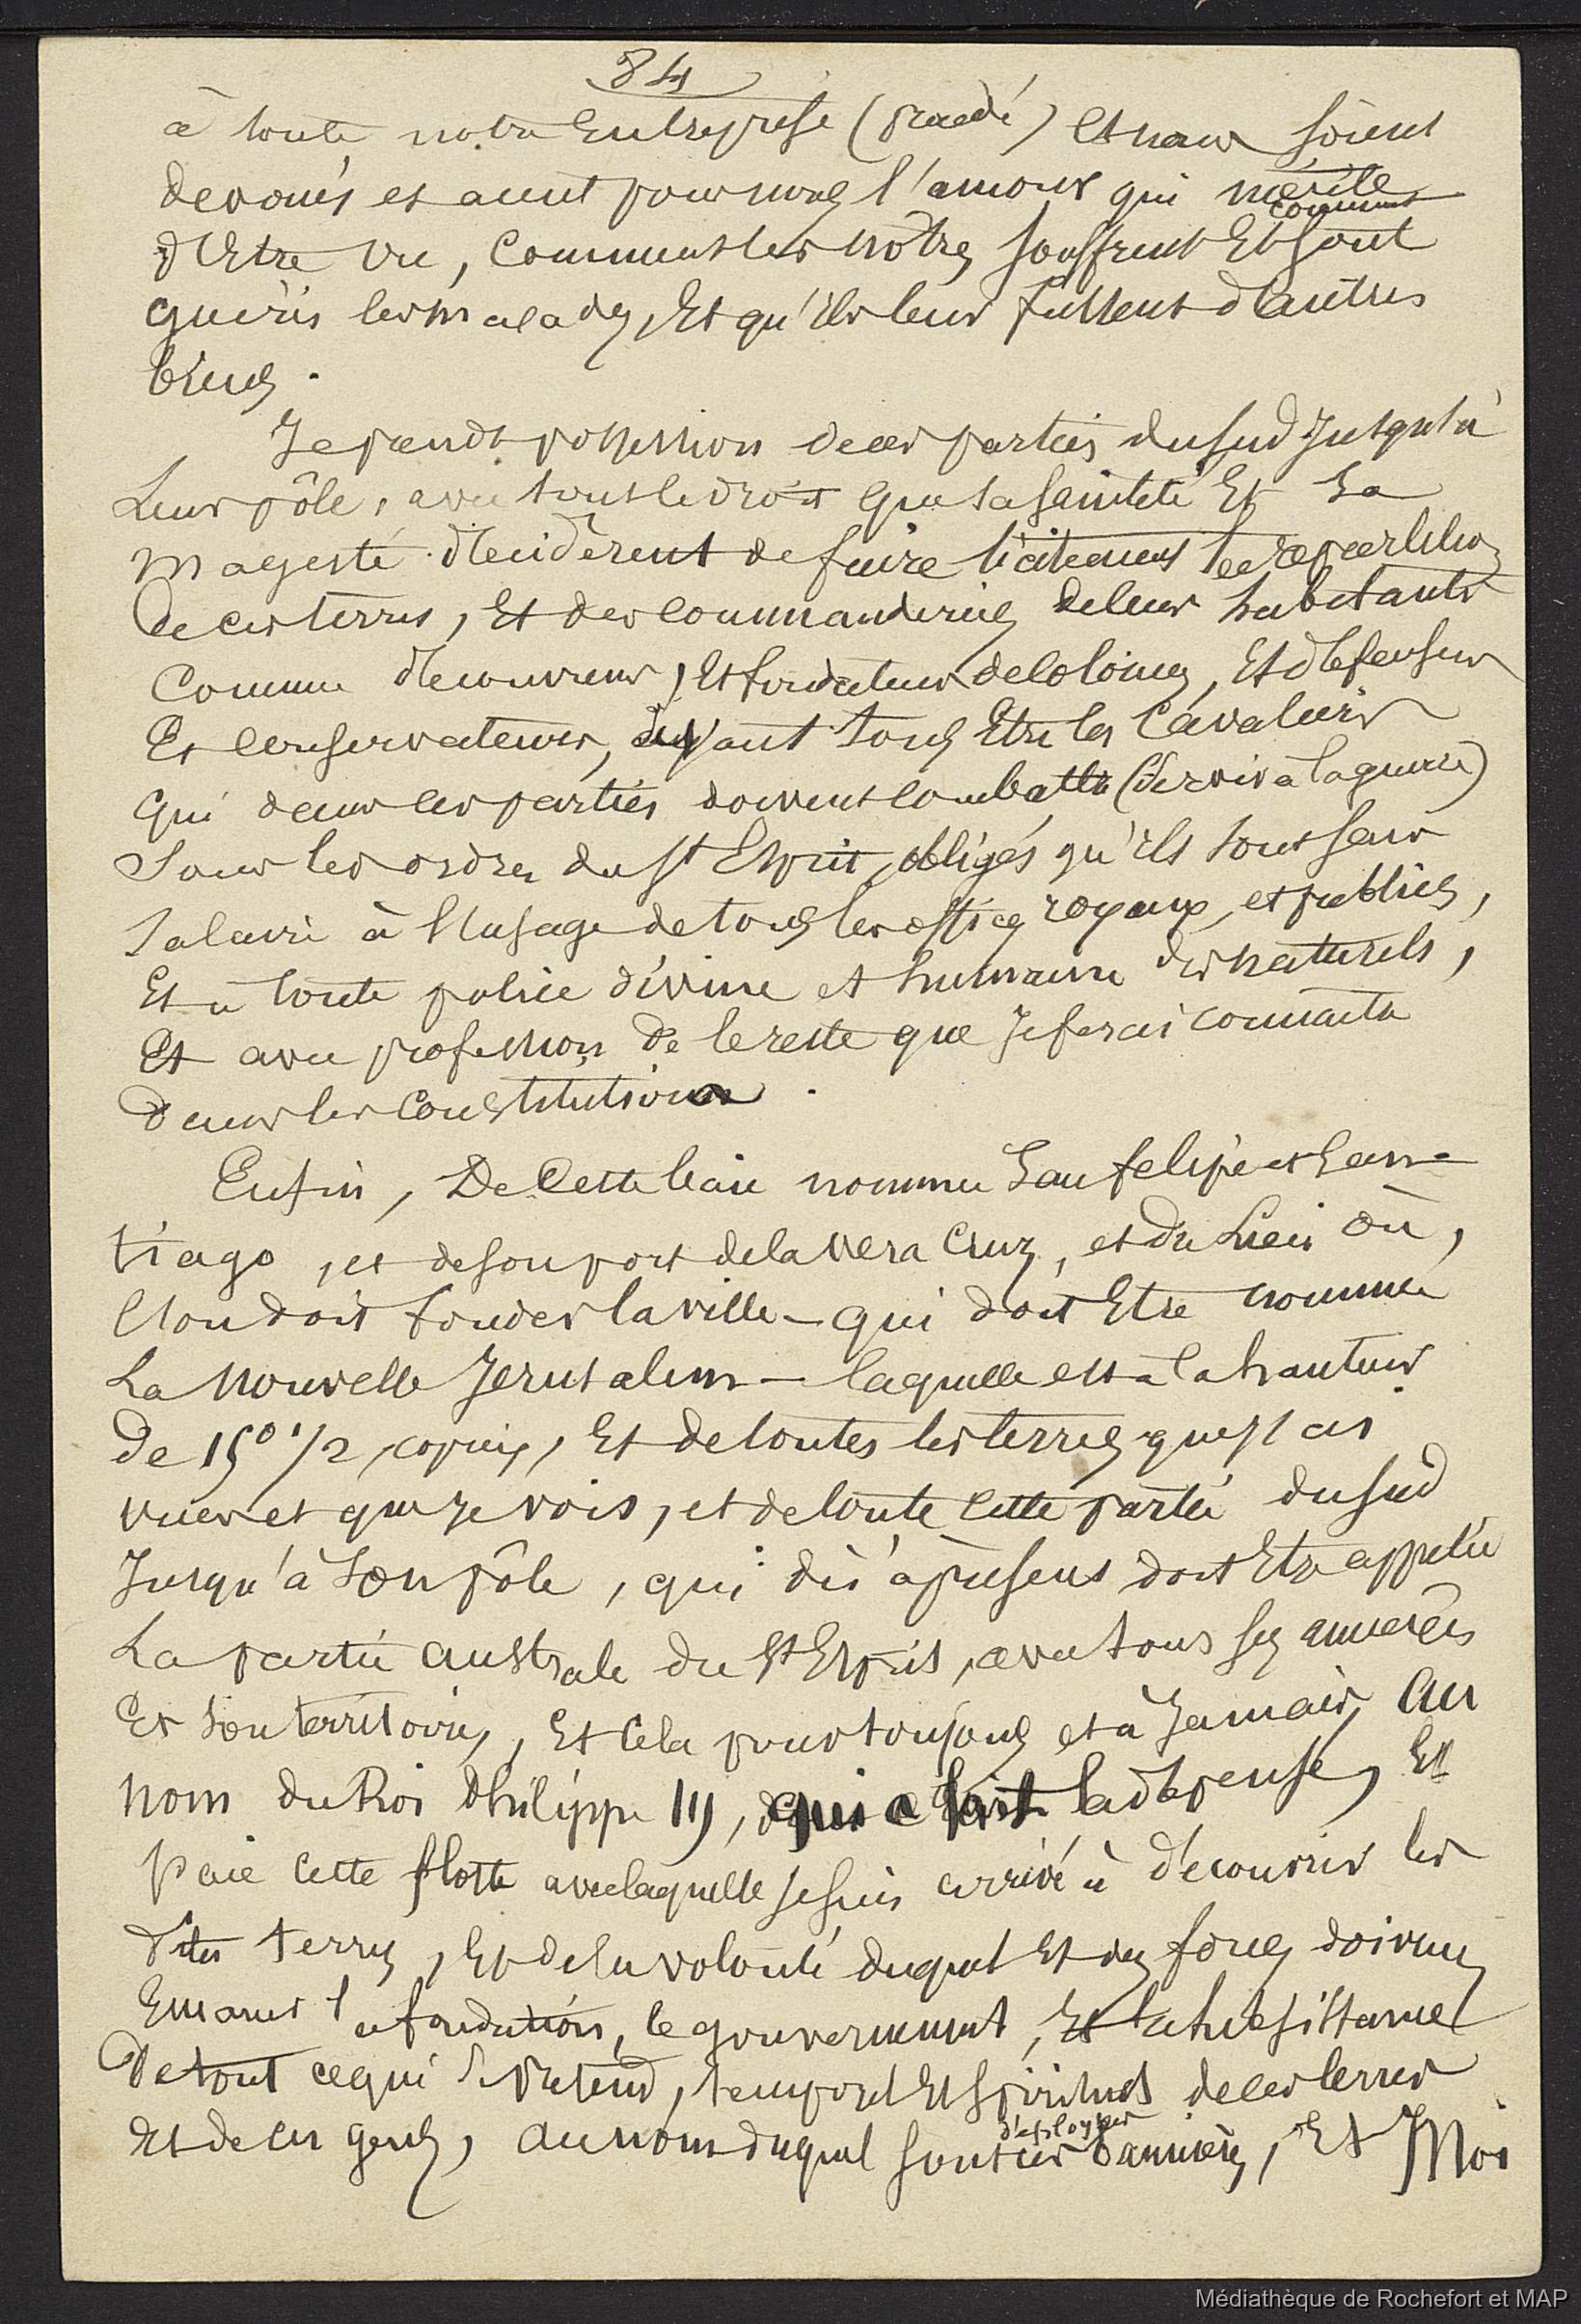 84
à toute notre Entreprise (procédé) Et nous soient
devoués et aient pour nous l'amour qui mérite
comment
d'Etre vu, Comment les nôtres souffrent Et sont
guéris les malades, Et qu'ils leur fussent d'autres
biens.
Je prends possession de ces parties du sud Jusqu'à
Leur pôle, avec tout le droit que sa sainteté Et Sa
Magesté decidèrent de faire licitement les repartitions
de ces terres, Et des commanderies de leurs habitants
Comme decouvreur, Et fondateur de colonies, Et defenseur
Et conservateurs, devant tous Etre les Cavaliers
qui dans ces parties doivent combattre (servir à la guerre)
Sous les ordres du St Esprit, obligés qu'ils sont sans
salaire à l'usage de tous les offices royaux, et publics,
Et à toute police divine et humaine des naturels,
Et avec profession de le reste que Je ferai connaitre
dans les Constitutions.
Enfin, De Cette baie nommée San felipe et San-
tiago, et de son port de la Vera Cruz, et du Lieu où,
l'on doit fonder la ville - qui doit Etre nommée
La Nouvelle Jerusalem - laquelle est à la hauteur
de 15° 1/2, et de toutes les terres que j'ai
vues et que je vois, et de toute cette partie du sud
Jusqu'à son pôle, qui dès à présent doit Etre appelée
La partie australe du St Esprit, avec tous ses annexes
Et son territoire, Et Cela pour toujours et à Jamais, Au
nom du Roi Philippe III, qui a fait la depense, Et
Paie cette flotte avec laquelle je suis arrivé à découvrir les
dites terres, Et de la volonté duquel Et des forces doivent
Emaner la fondation, le gouvernement, Et la subsistance
De tout ce qui se pretend, temporel Et spirituel de ces terres
d'eployées
Et de ces gens, au nom duquel sont ces bannières, Et Moi
Médiathèque de Rochefort et MAP